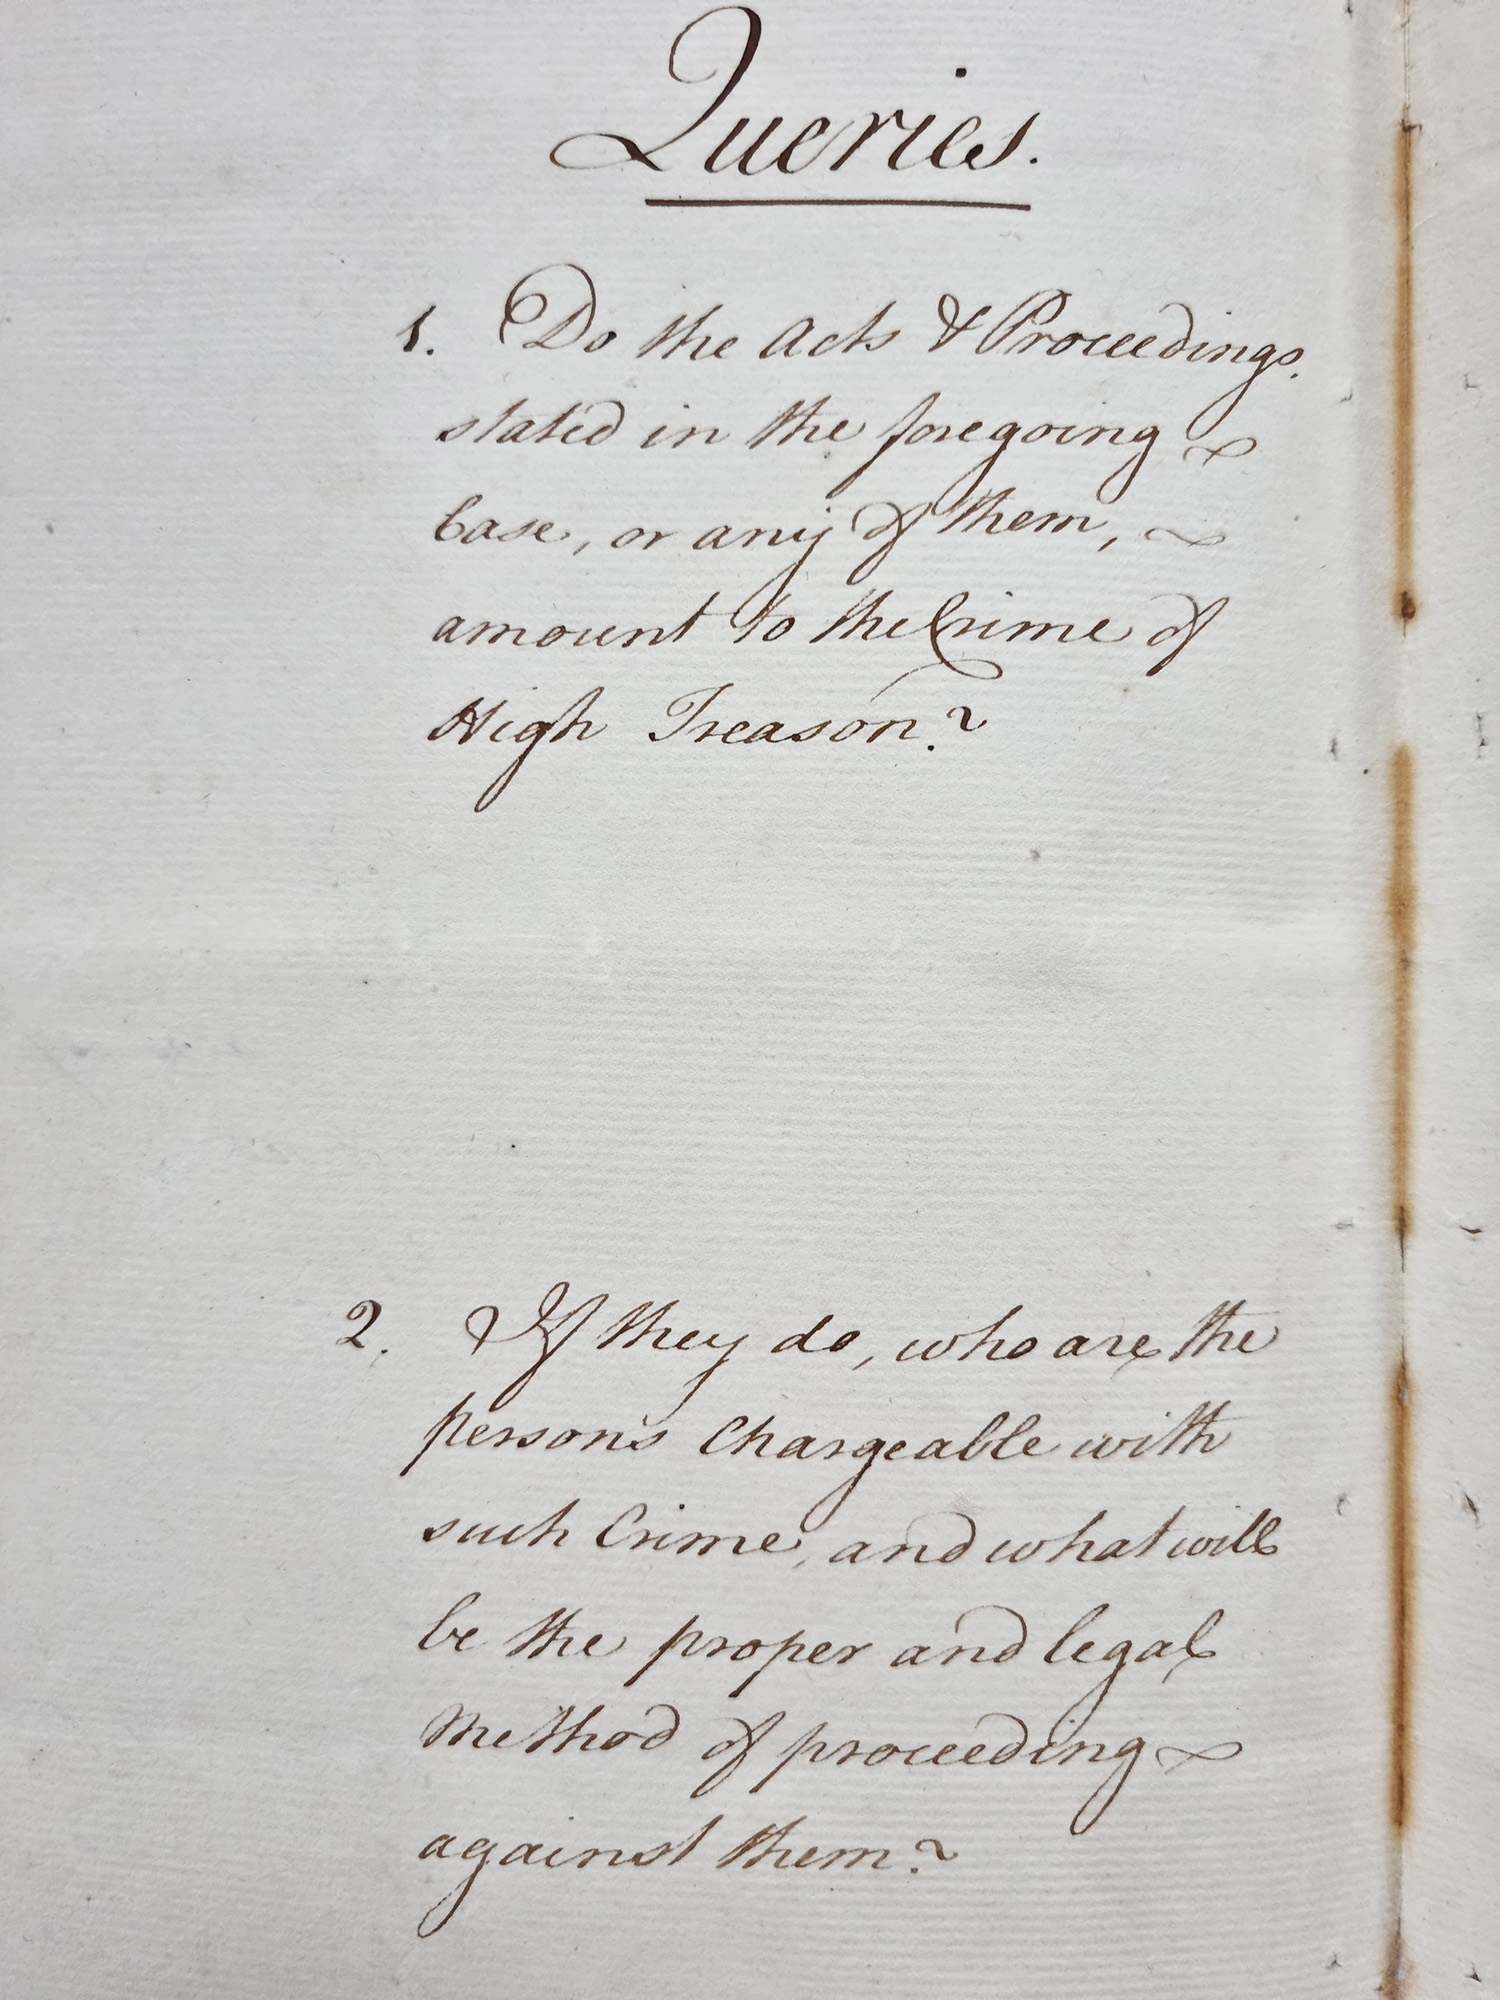 Queries.
1. Do the Acts & Proceedings
stated in the foregoing
Case, or any of them,
amount to the Crime of
High Treason?
2. If they do, who are the
persons Chargeable with
such Crime, and what will
be the proper and legal
Method of proceeding
against them?